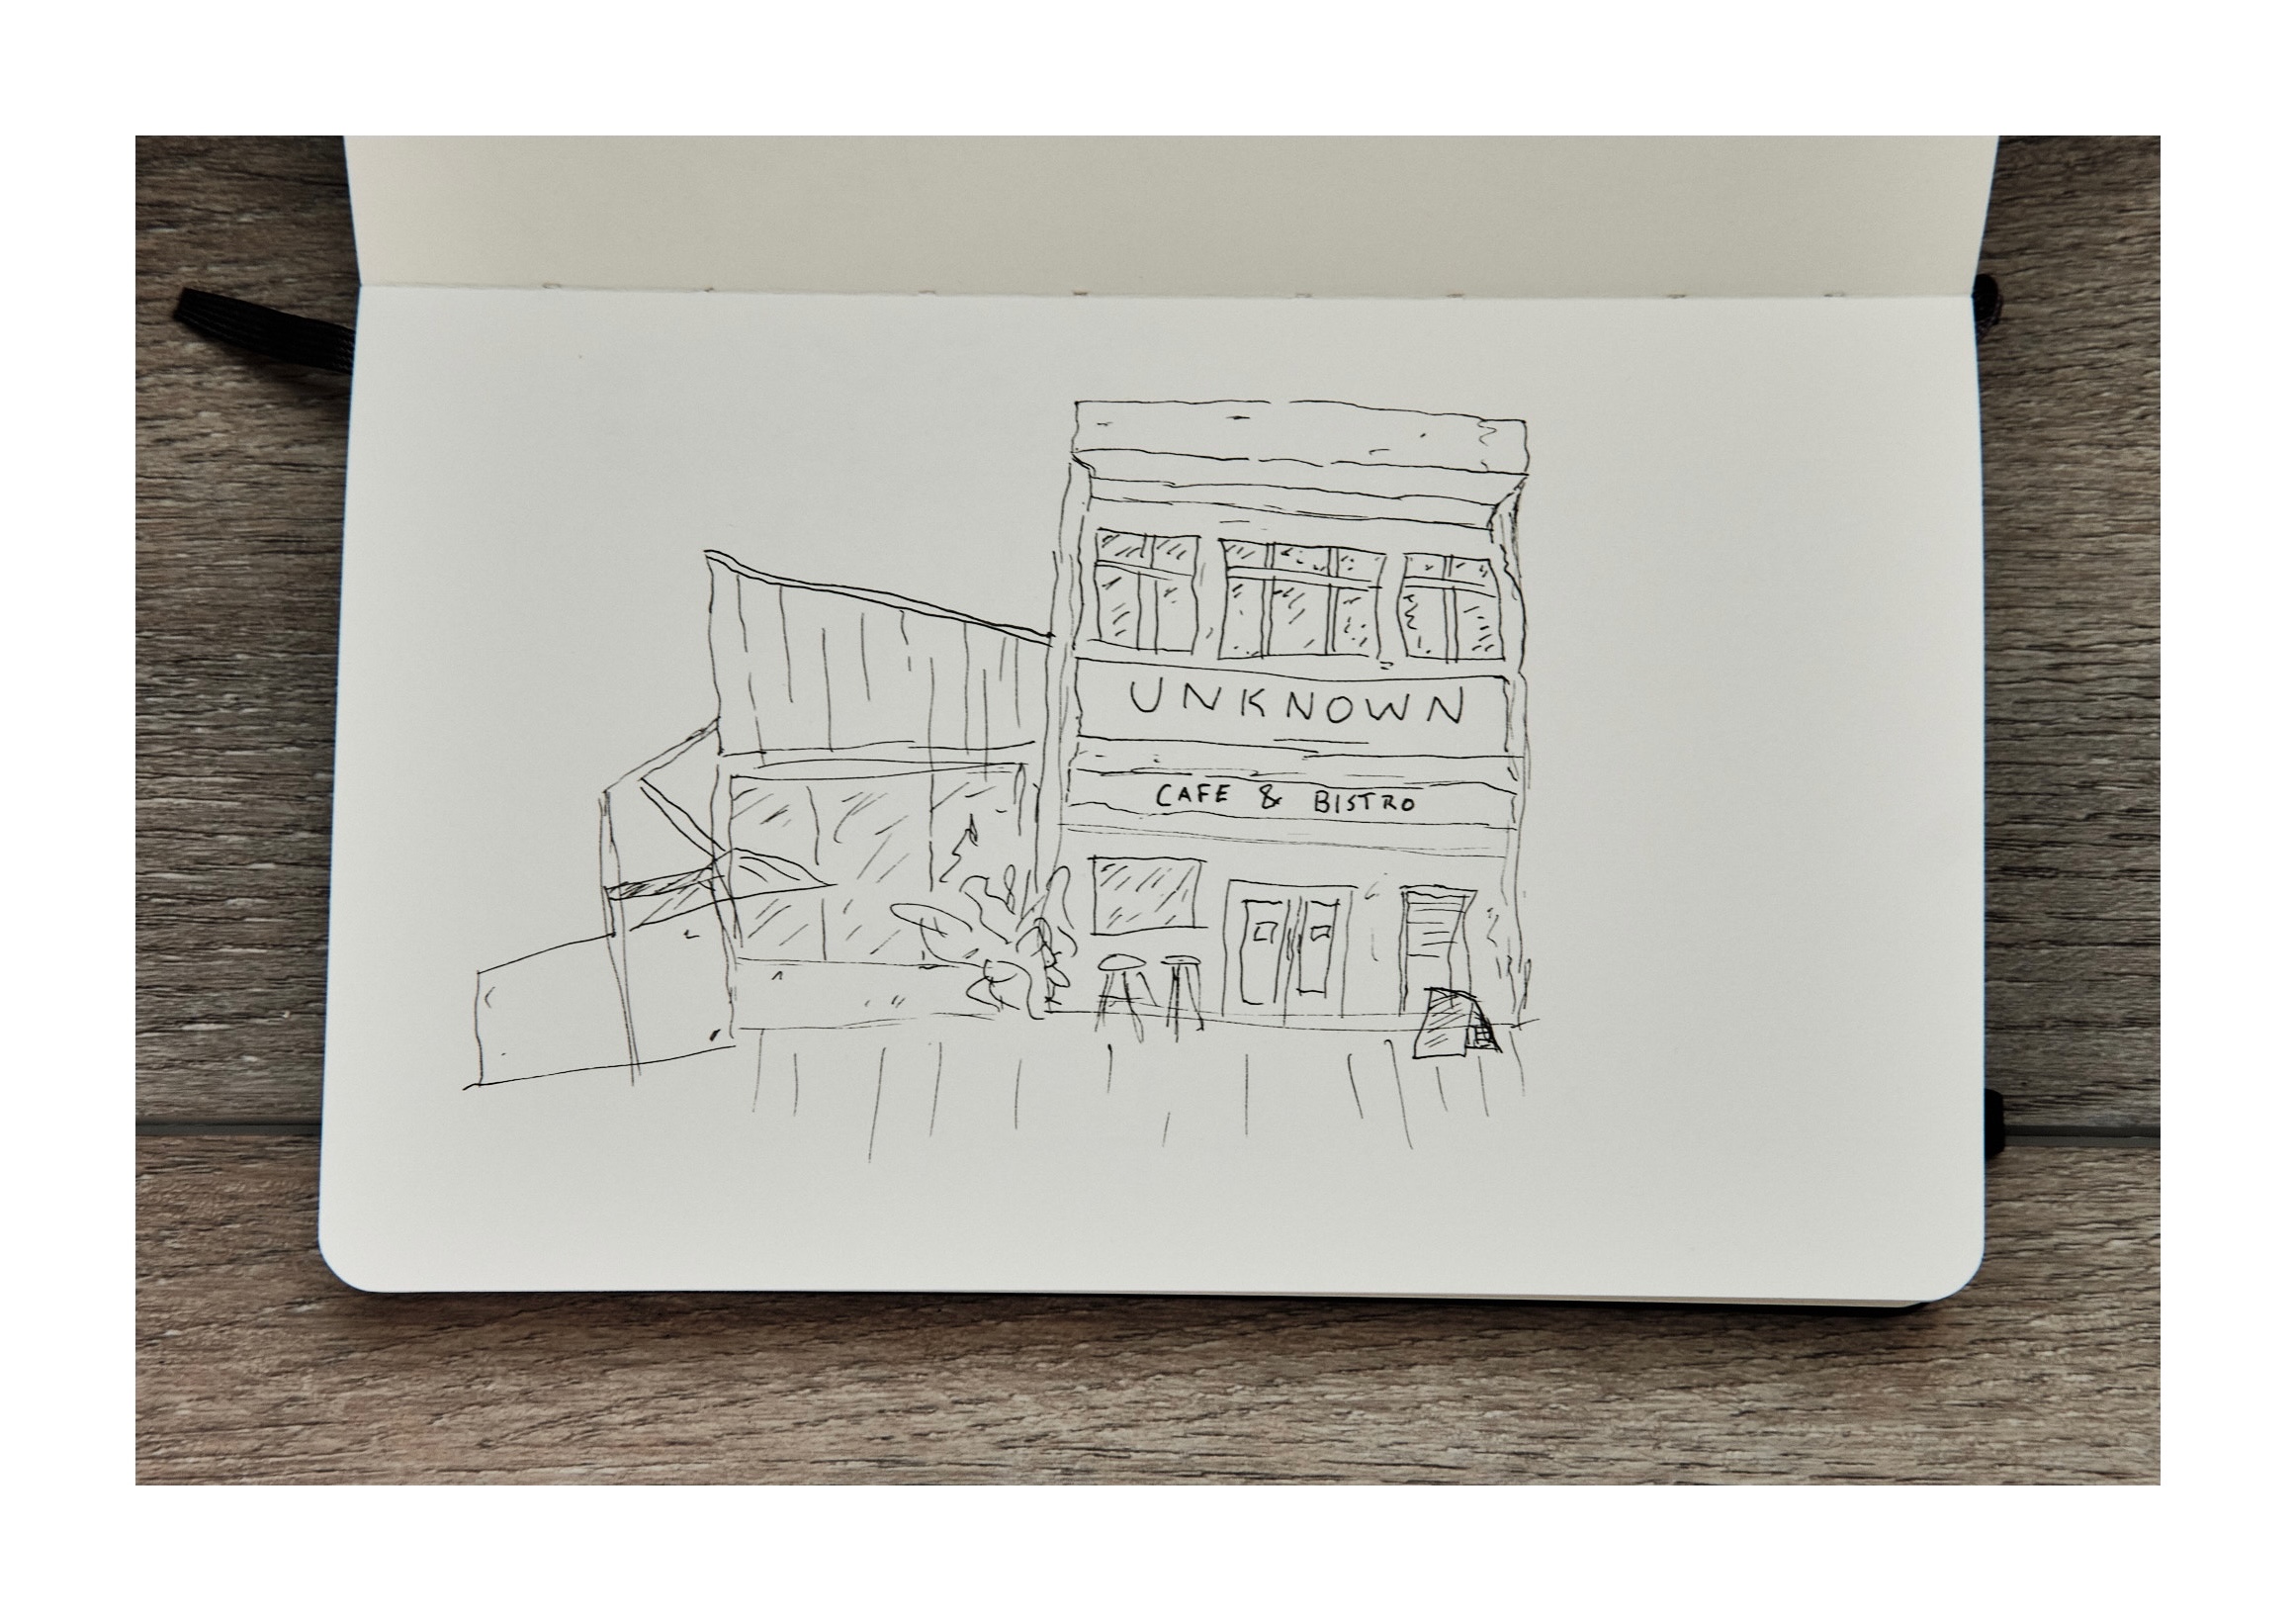 UNKNOWN
CAFE & BISTRO